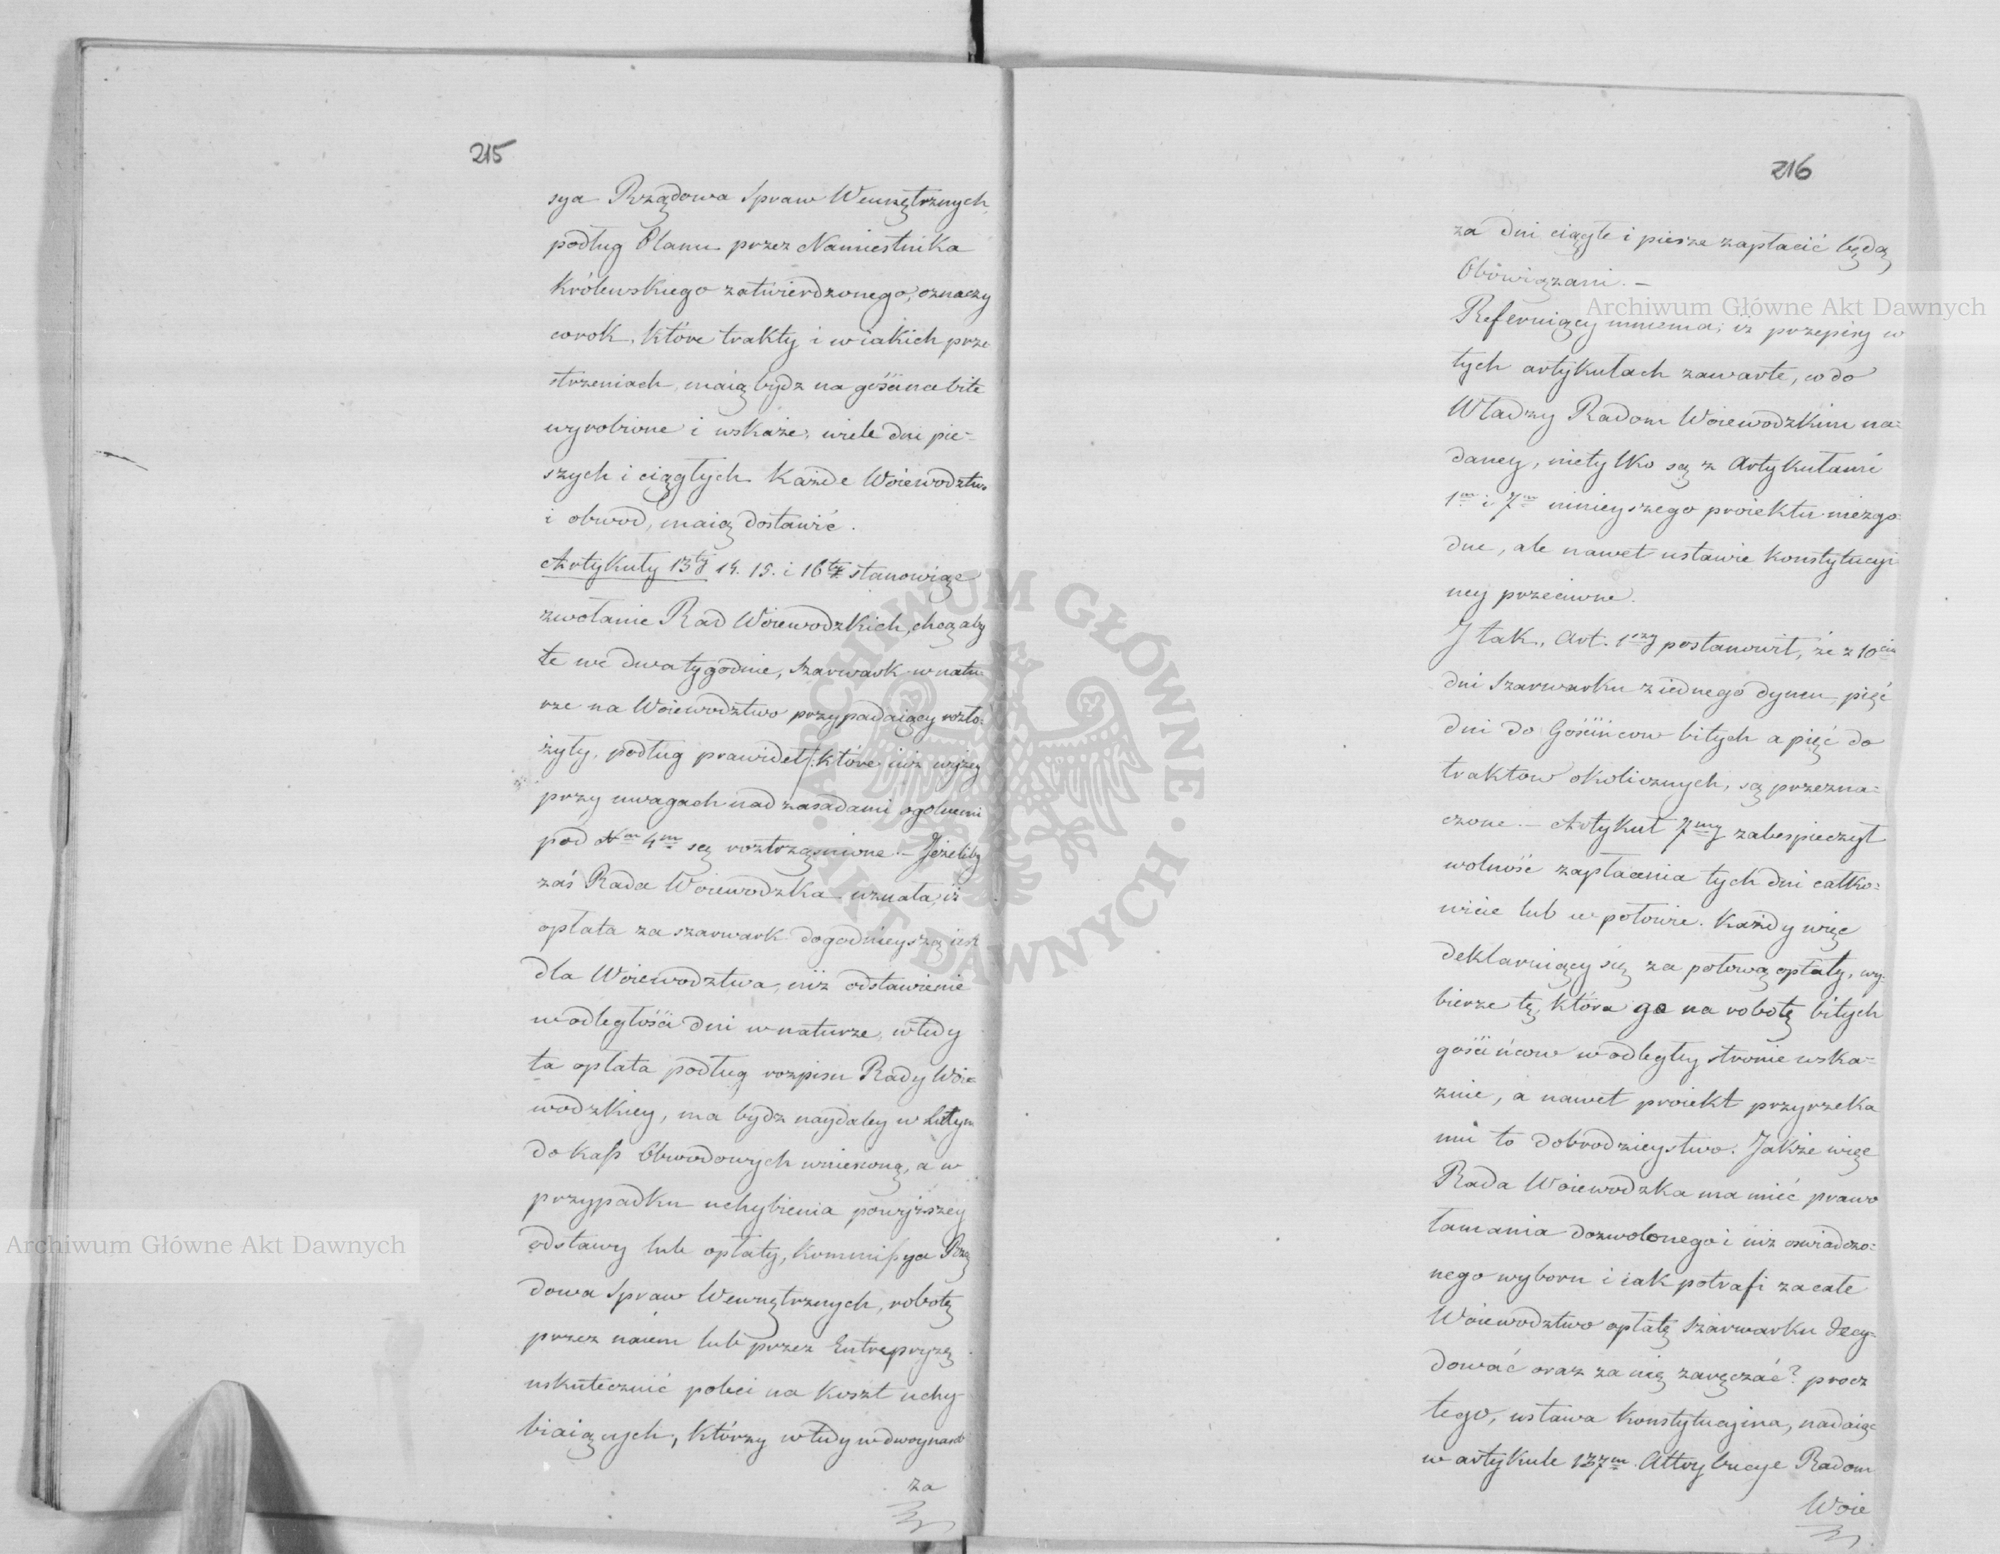 215
sya Rządowa Spraw Wewnętrznych,
podług Planu przez Namiestnika
Królewskiego zatwierdzonego, oznaczy
corok, które trakty i w iakich prze
strzeniach, maią bydz na gościńce bite
wyrobione i wskaże, wiele dni pie=
szych i ciągłych każde Woiewodztwo
i obwod, maią dostawić.
Artykuły 13ty 14. 15. i 16ty stanowiąc
zwołanie Rad Woiewodzkich, chcą aby
te we dwa tygodnie, Szarwark w natu
rze na Woiewodztwo przypadaiący rozło=
żyły, podług prawideł /: które iuż wyżey
przy uwagach nad zasadami ogolnemi
pod Nm 4m są roztrząśnione.— Jeżeliby
zaś Rada Woiewodzka uznała, iż
opłata za szarwark dogodnieyszą iest
dla Woiewodztwa, niż odstawienie
w odległości dni w naturze, wtedy
ta opłata podług rozpisu Rady Woie
wodzkiey, ma bydz naydaley w Lutym
do kass Obwodowych wniesioną, a w
przypadku uchybienia powyższey
odstawy lub opłaty, Kommissya Rzą
dowa Spraw Wewnętrznych, robotę
przez naiem lub przez Entrepryzę
uskutecznić poleci na koszt uchy=
biaiących, którzy wtedy w dwoynasob
za
216
za dni ciągłe i piesze zapłacić będą
Obowiązani.—
Referuiący mniema, iż przepisy w
tych artykułach zawarte, co do
Władzy Radom Woiewodzkim na=
daney, nietylko są z Artykułami
1m i 7m ninieyszego proiektu niezgo=
dne, ale nawet ustawie konstytucyi
ney przeciwne.
I tak, Art. 1szy postanowił, że z 10ciu
dni Szarwarku z iednego dymu, pięć
dni do Gościńcow bitych a pięć do
traktow okolicznych, są przezna=
czone.— Artykuł 7my zabespieczył
wolność zapłacenia tych dni całko=
wicie lub w połowie. Każdy więc
deklaruiący się za połową opłaty, wy=
bierze tę, która go na robotę bitych
gościńcow w odległey stronie wska=
znie, a nawet proiekt przyrzeka
mu to dobrodzieystwo. Jakże więc
Rada Woiewodzka ma mieć prawo
łamania dozwolonego i iuż oswiadczo=
nego wyboru i iak potrafi za całe
Woiewodztwo opłatę Szarwarku decy=
dować oraz za nię zaręczać? procz
tego, ustawa konstytucyina, nadaiąc
w artykule 137m Attrybucye Radom
Woie
Archiwum Główne Akt Dawnych
Archiwum Główne Akt Dawnych
ARCHIWUM GŁÓWNE · AKT DAWNYCH ·